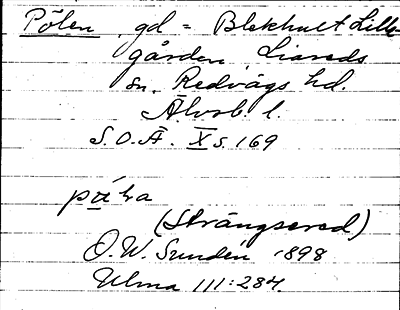 Pölen, gd = Blekhult Lille-
gården, Liareds
sn, Redvägs hd.
Älvsb. l.
S.O.Ä. X s. 169
(Strängsered)
O.W. Sundén 1898
Ulma 111:284.